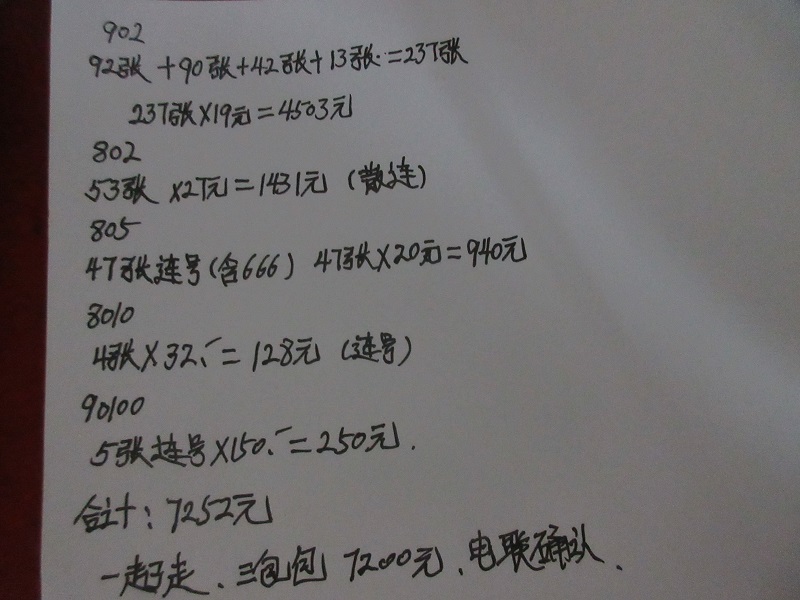 902
92张+90张+42张+13张=237张
237张×19元=4503元
802
53张 ×27元=1431元(散连)
805
47张连号(含666) 47张×20元=940元
8010
4张×32.-=128元(连号)
90100
5张连号×150.-=250元.
合计:7252元
一起走、三包包 7200元、电联确认、